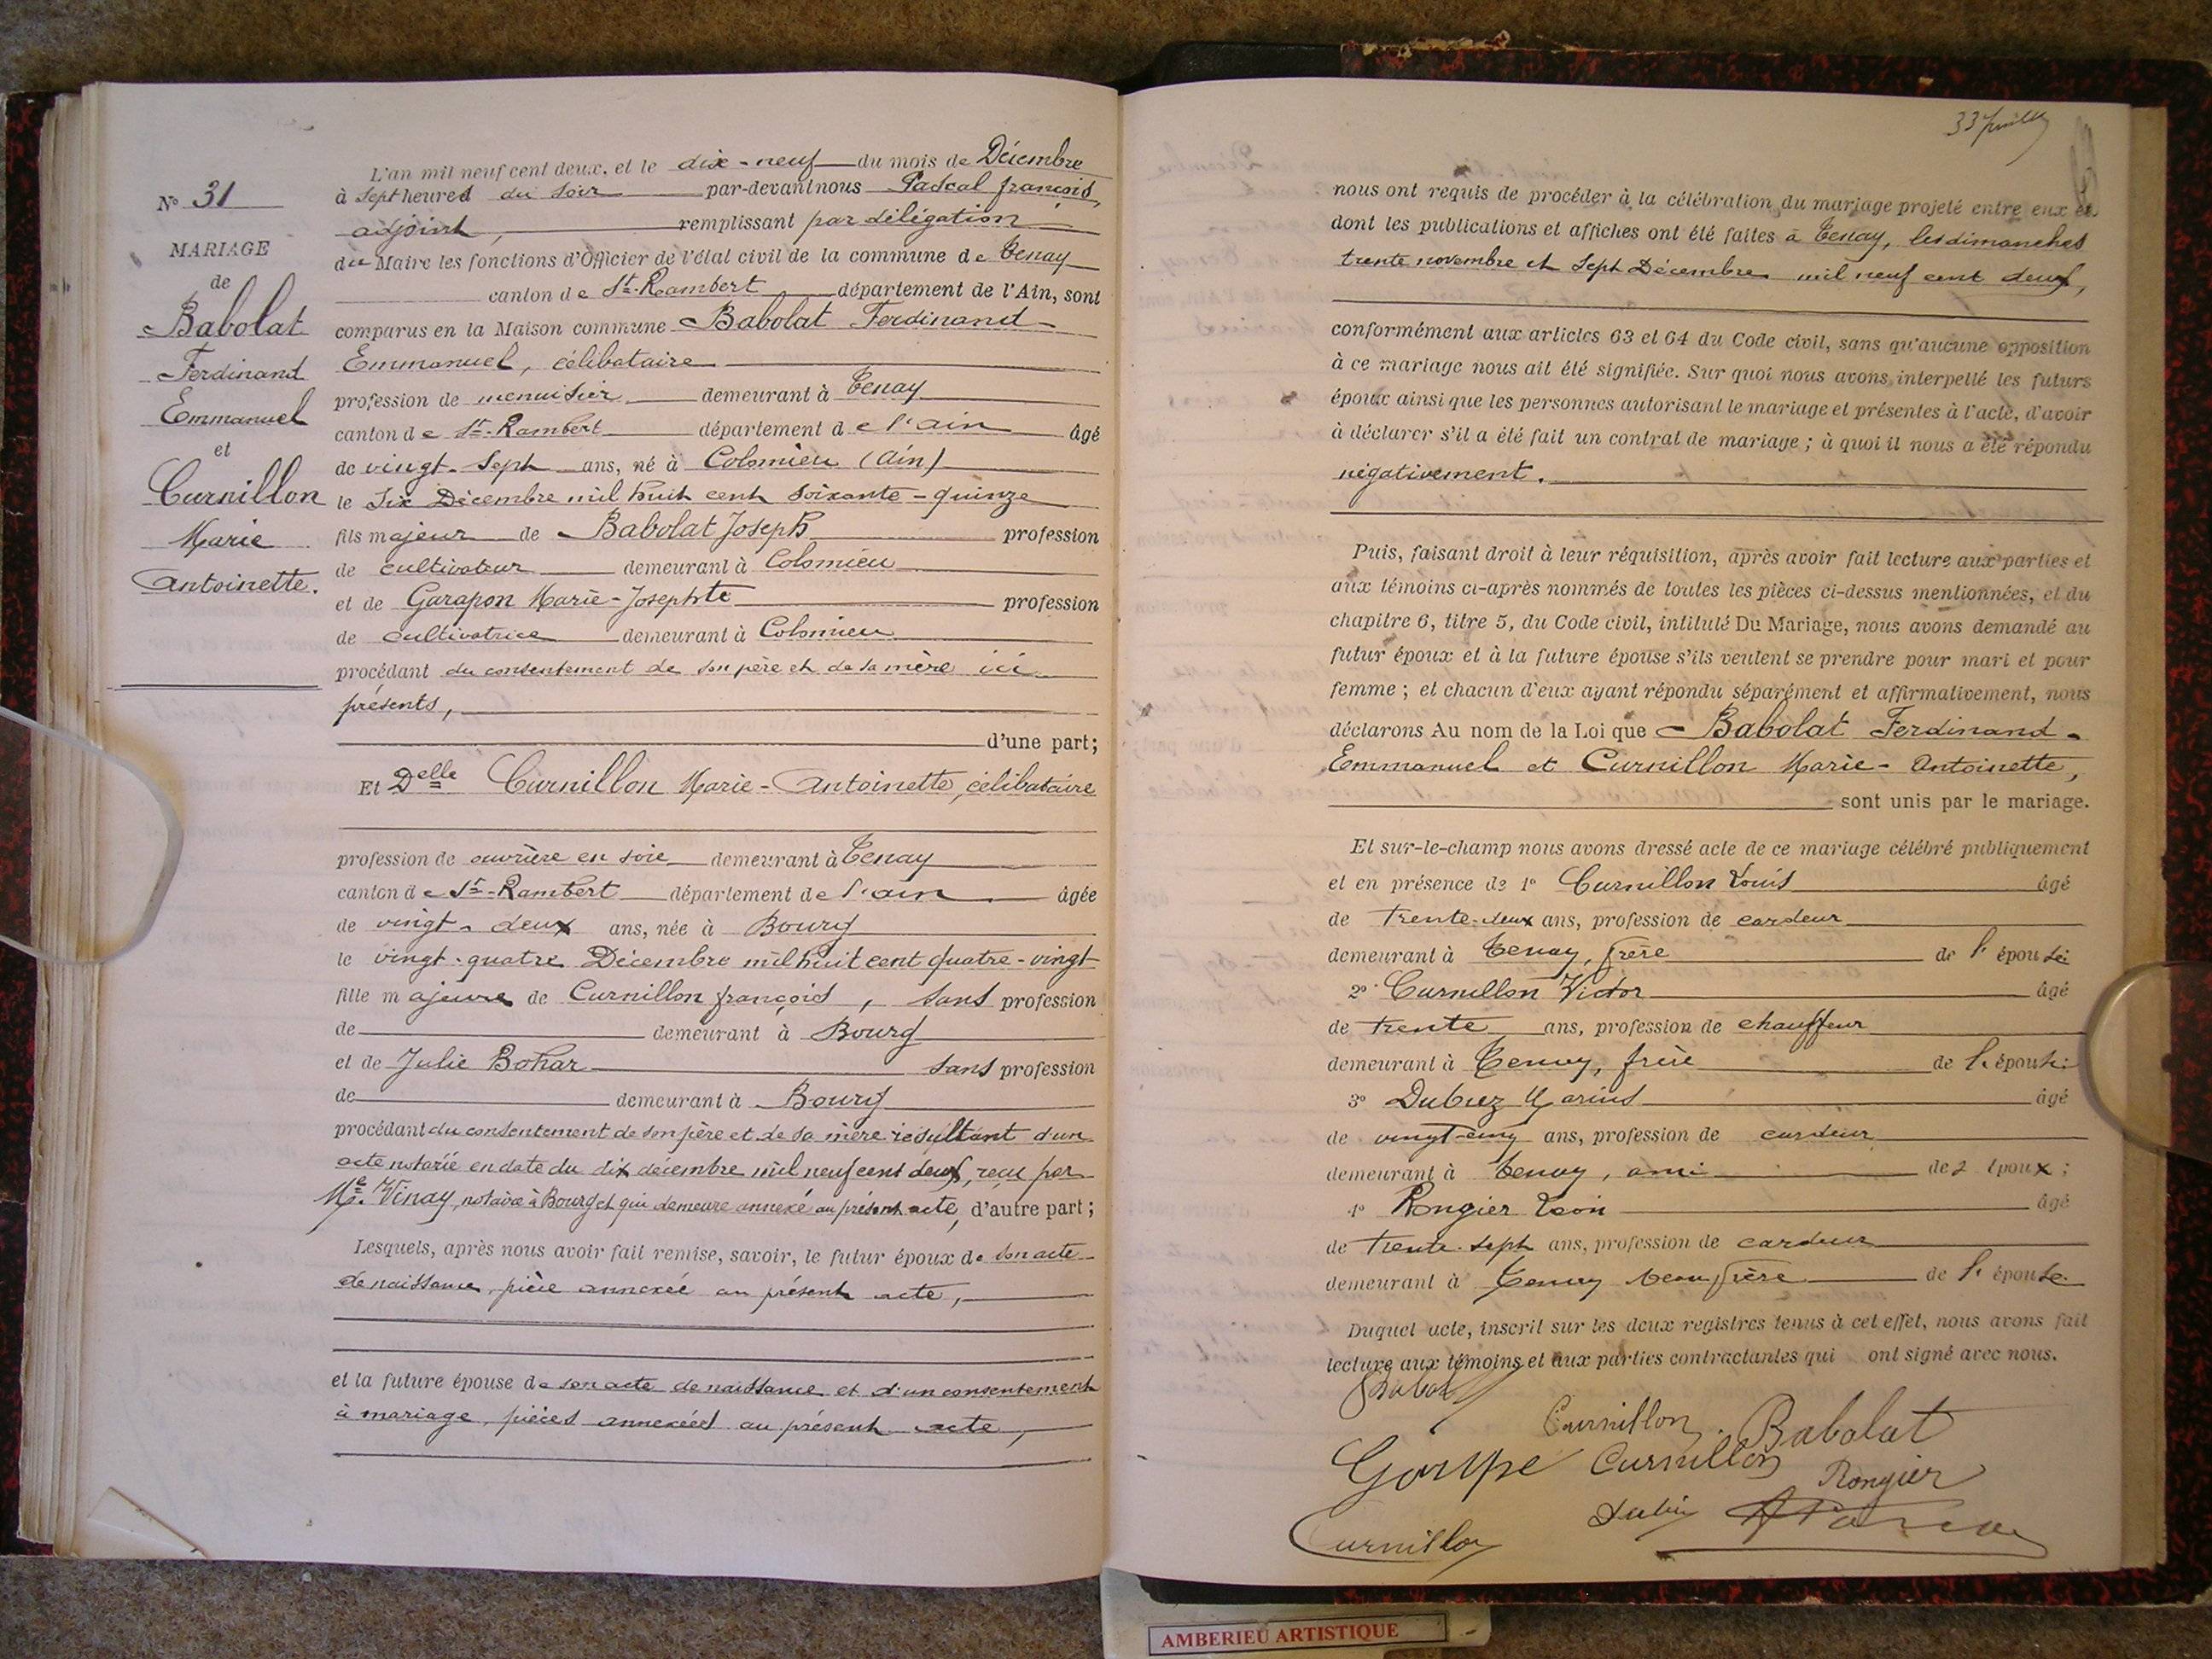 N° 31
MARIAGE
de
Babolat
Ferdinand
Emmanuel
et
Curnillon
Marie
Antoinette.
L'an mil neuf cent deux, et le dix-neuf du mois de Décembre
à sept heures du soir par-devant nous Pascal françois,
adjoint, remplissant par délégation
du Maire les fonctions d'Officier de l'état civil de la commune de Tenay
canton de St-Rambert département de l'Ain, sont
comparus en la Maison commune Babolat Ferdinand-
Emmanuel, célibataire
profession de menuisier demeurant à Tenay
canton de St-Rambert département de l'ain âgé
de vingt-sept ans, né à Colomieu (Ain)
le Six Décembre mil huit cent soixante-quinze
fils majeur de Babolat Joseph profession
de cultivateur demeurant à Colomieu
et de Garapon Marie-Josephte profession
de cultivatrice demeurant à Colomieu
procédant du consentement de son père et de sa mère ici
présents,
d'une part;
Et Delle Curnillon Marie-Antoinette, célibataire
profession de ouvrière en soie demeurant à Tenay
canton de St-Rambert département de l'ain âgée
de vingt-deux ans, née à Bourg
le vingt-quatre Décembre mil huit cent quatre-vingt
fille majeure de Curnillon françois, sans profession
de demeurant à Bourg
et de Julie Bohar sans profession
de demeurant à Bourg
procédant du consentement de son père et de sa mère résultant d'un
acte notarié en date du dix décembre mil neuf cent deux, reçu par
Me Vinay, notaire à Bourg et qui demeure annexé au présent acte, d'autre part;
Lesquels, après nous avoir fait remise, savoir, le futur époux de son acte
de naissance, pièce annexée au présent acte,
et la future épouse de son acte de naissance et d'un consentement
à mariage, pièces annexées au présent acte,
33
nous ont requis de procéder à la célébration du mariage projeté entre eux et
dont les publications et affiches ont été faites à Tenay, les dimanches
trente novembre et sept Décembre mil neuf cent deux,
conformément aux articles 63 et 64 du Code civil, sans qu'aucune opposition
à ce mariage nous ait été signifiée. Sur quoi nous avons interpellé les futurs
époux ainsi que les personnes autorisant le mariage et présentes à l'acte, d'avoir
à déclarer s'il a été fait un contrat de mariage; à quoi il nous a été répondu
négativement.
Puis, faisant droit à leur réquisition, après avoir fait lecture aux parties et
aux témoins ci-après nommés de toutes les pièces ci-dessus mentionnées, et du
chapitre 6, titre 5, du Code civil, intitulé Du Mariage, nous avons demandé au
futur époux et à la future épouse s'ils veulent se prendre pour mari et pour
femme; et chacun d'eux ayant répondu séparément et affirmativement, nous
déclarons Au nom de la Loi que Babolat Ferdinand-
Emmanuel et Curnillon Marie-Antoinette,
sont unis par le mariage.
Et sur-le-champ nous avons dressé acte de ce mariage célébré publiquement
et en présence de 1° Curnillon Louis âgé
de trente-deux ans, profession de cardeur
demeurant à Tenay, frère de l'épouse
2° Curnillon Victor âgé
de trente ans, profession de chauffeur
demeurant à Tenay, frère de l'épouse:
3° Dubiez Marius âgé
de vingt-cinq ans, profession de cardeur
demeurant à Tenay, ami des époux;
4° Rongier Léon âgé
de trente-sept ans, profession de cardeur
demeurant à Tenay beau frère de l'épouse.
Duquel acte, inscrit sur les deux registres tenus à cet effet, nous avons fait
lecture aux témoins et aux parties contractantes qui ont signé avec nous.
Curnillon. Babolat
Curnillon
Rongier
Curnillon
AMBERIEU ARTISTIQUE